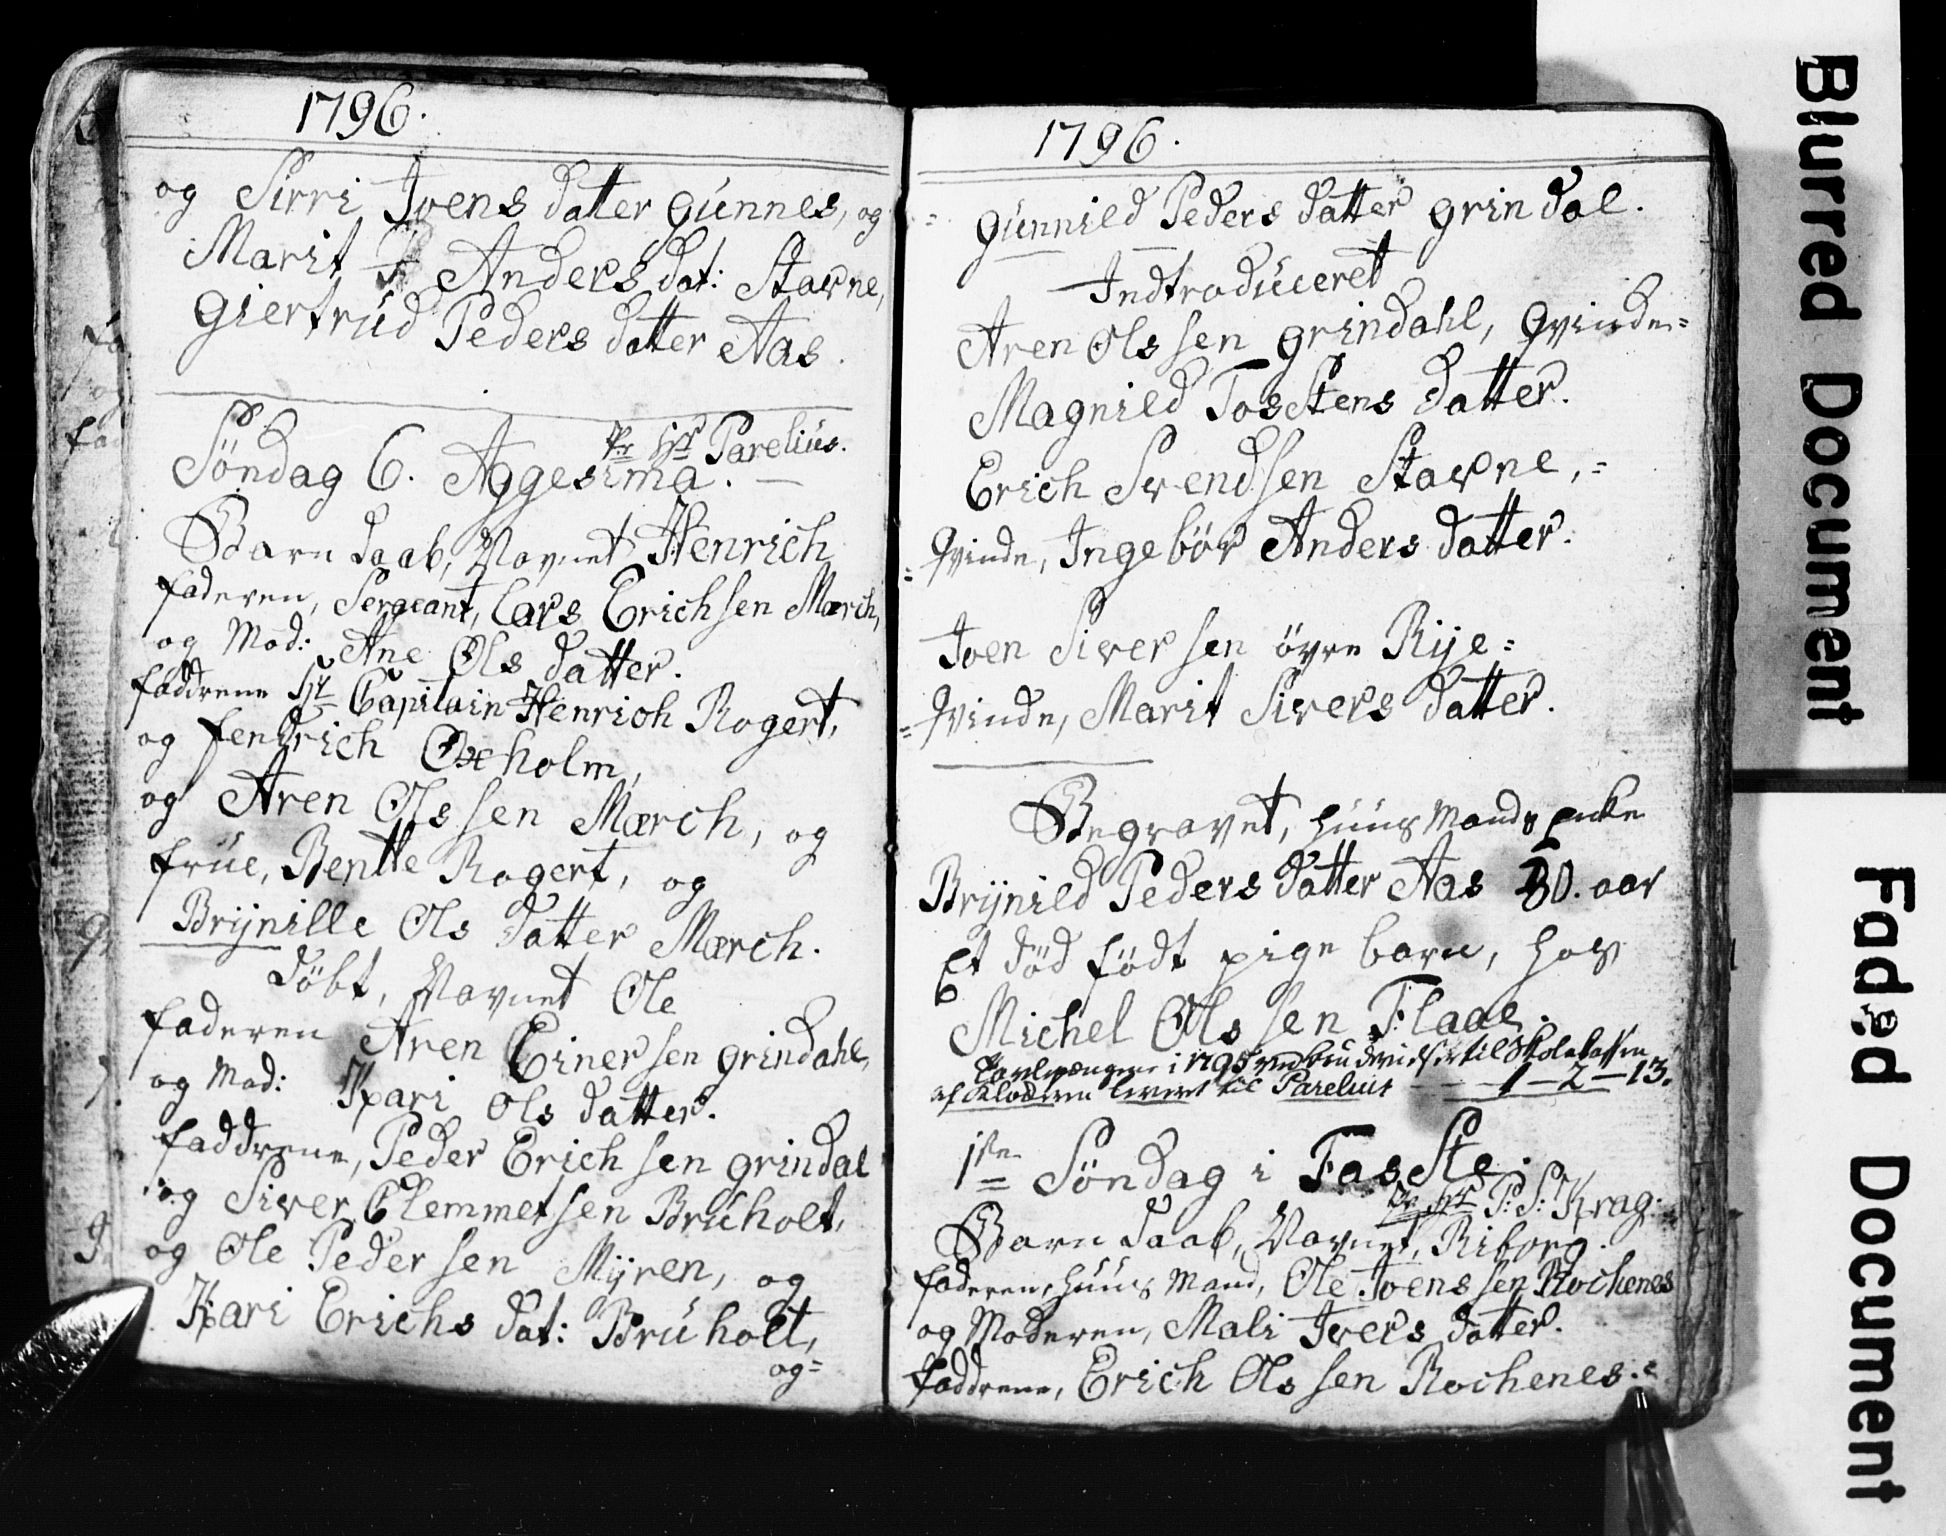 1796.
og Sirri Joens datter Gunnes, og
Marit Anders dat: Stavne,
Giertrud Peders datter Aas.
Pr Hr Parelius.
Söndag 6. Aggesima.
Barn daab, Navnet Henrich
faderen, Sergeant, Lars Erichsen Mærch,
og Mod: Ane Ols datter.
faddrene Hr Capitain Henrich Rogert,
og fendrich Oxeholm,
og Aren Olssen Mærch, og
frue, Bentte Rogert, og
Brÿnille Ols datter Mærch.
döbt, Navnet Ole
faderen Aren Einersen Grindahl,
og Mod: Kari Ols datter.
faddrene, Peder Erichsen Grindal
og Siver Clemmetsen Bruholt,
og Ole Pedersen Mÿren, og
Kari Erichs dat: Bruholt,
og=
1796.
= Gunnild Peders datter Grindal.
Indtroduceret
Aren Olssen Grindahl, Qvinde=
Magnild Tosstens datter.
Erich Svendsen Stavne,=
= Qvinde, Ingebör Anders datter.
Joen Siversen övre Rije=
= Qvinde, Marit Sivers datter.
Begravet, Huus Mands Enke
Brÿnild Peders datter Aas 80. aar
Et död födt pige barn, hos
Michel Olssen Flaae.
Tavlepengene i 1795 ved brudevielser til Skolekassen
af Klokkeren leveret til Parelius — 1 — 2 — 13.
1ste Söndag i Fasste.
Pr Hr P: S: Krag:
Barn daab, Navnet, Riborg.
faderen, Huus Mand, Ole Joenssen Rochenes
og Moderen, Mali Ivers datter.
faddrene, Erich Olssen Rochenes.=
Blurred Document
Faded Document